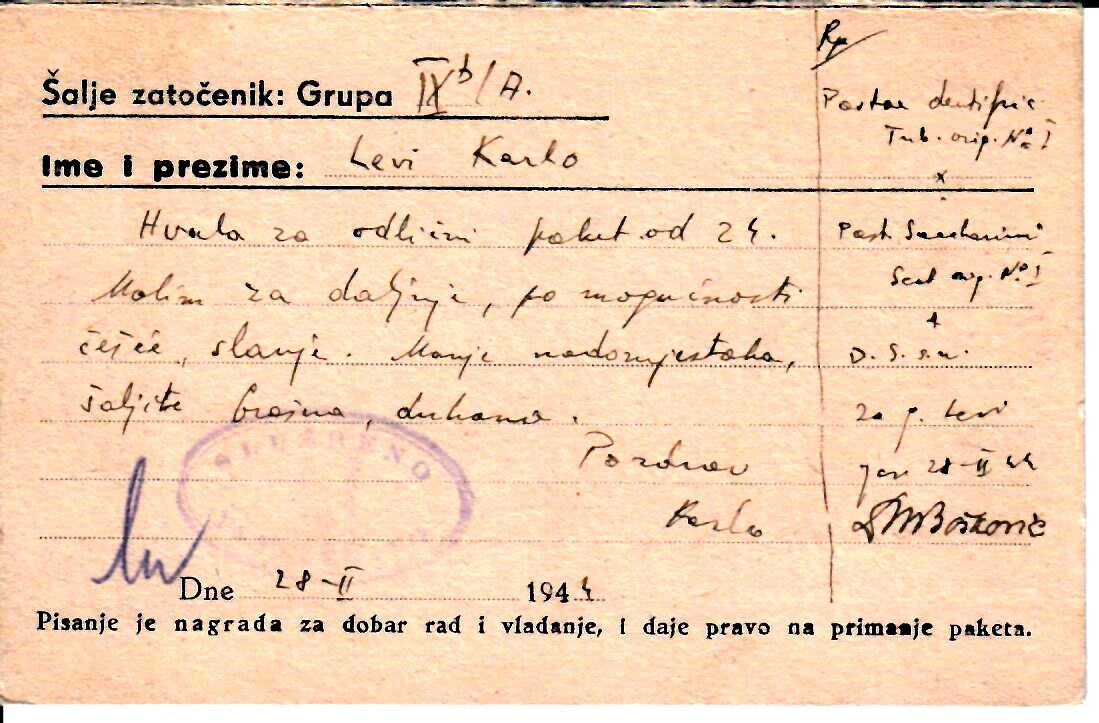 Šalje zatočenik: Grupa IXb/A.
Ime i prezime: Levi Karlo
Hvala za odlični paket od 24.
Molim za daljnje, po mogućnosti
češće, slanje. Manje nadomjestaka,
šaljite brašna, duhana.
Pozdrav
Karlo
SLUŽBENO
Dne 28-II 1944
Pisanje je nagrada za dobar rad i vladanje, i daje pravo na primanje paketa.
Rp
Pastae dentifric.
Tub. orig. No I
x
Past. Saccharini
Scat orig. No I
D. S. s. n.
za g. Levi
Jas 28-II 44
Bošković